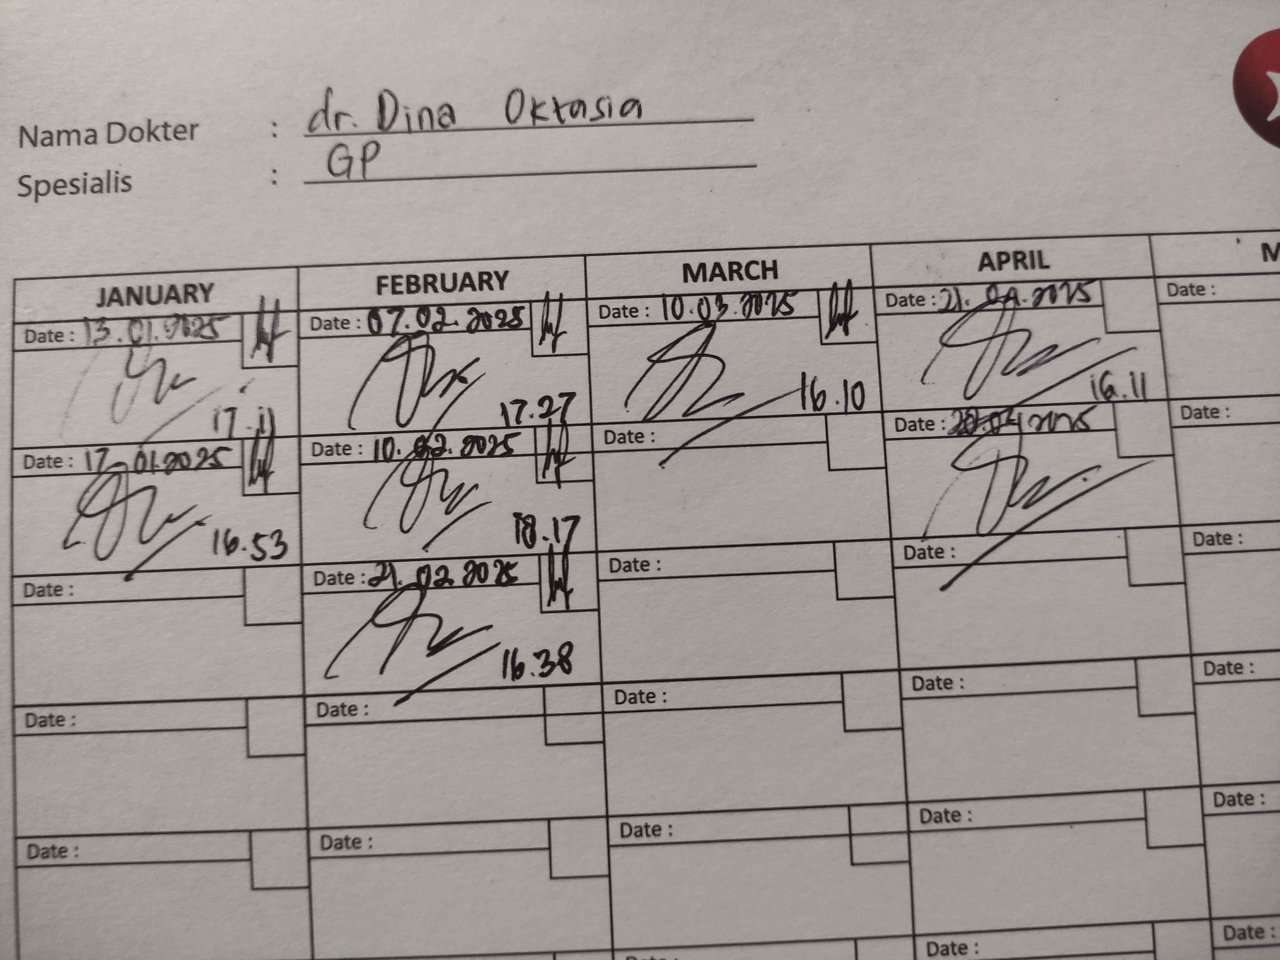 Nama Dokter : dr. Dina Oktasia
Spesialis : GP
JANUARY FEBRUARY MARCH APRIL M
Date : 13.01.2025 Date : 07.02.2025 Date : 10.03.2025 Date : 21.04.2025 Date :
17.11 17.27 16.10 16.11
Date : 17.01.2025 Date : 10.02.2025 Date : Date : 04 2025 Date :
16.53 18.17
Date : Date : 21.02.2025 Date : Date : Date :
16.38
Date : Date : Date : Date : Date :
Date : Date : Date : Date : Date :
Date : Date :